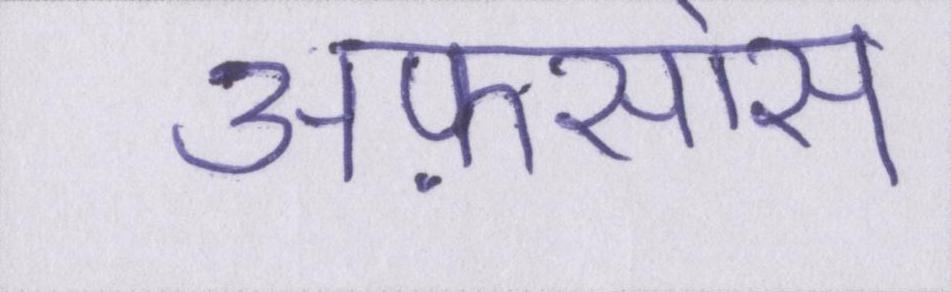 अफ़सोस